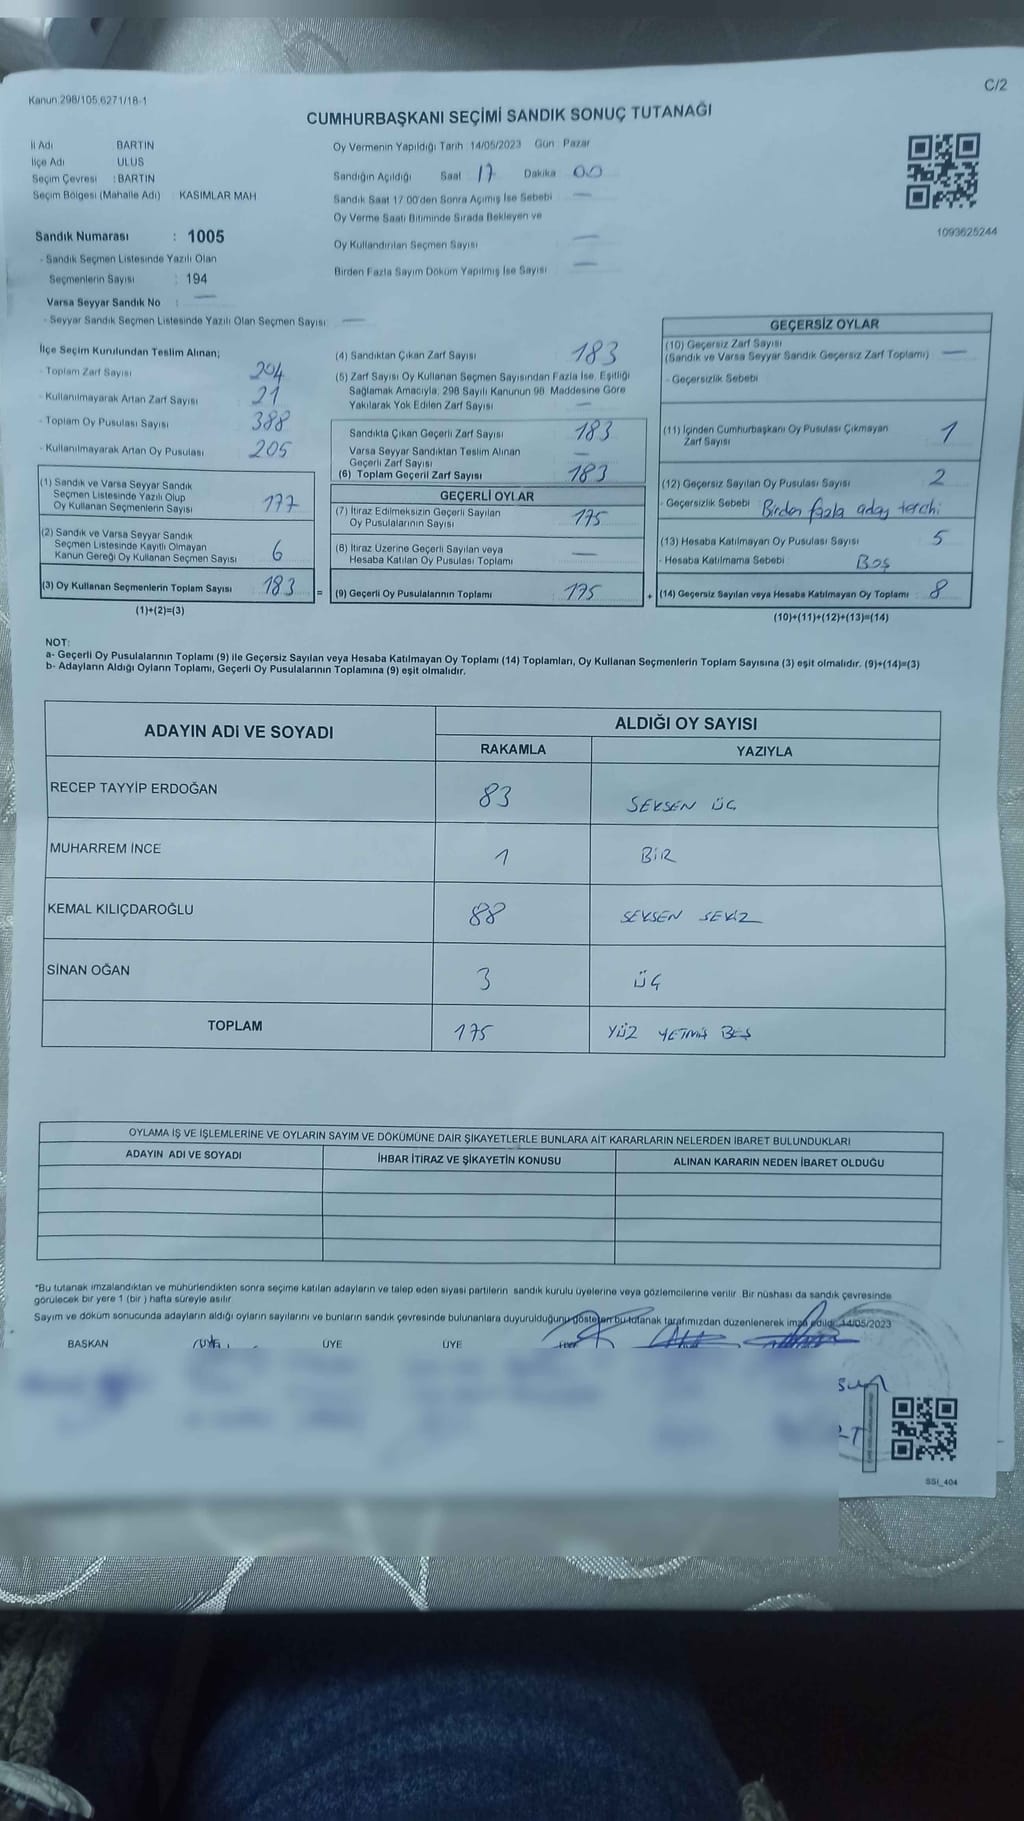 C/2
Kanun:298/105,6271/18-1
CUMHURBAŞKANI SEÇİMİ SANDIK SONUÇ TUTANAĞI
İl Adı BARTIN
İlçe Adı ULUS
Seçim Çevresi : BARTIN
Seçim Bölgesi (Mahalle Adı) : KASIMLAR MAH
Sandık Numarası : 1005
- Sandık Seçmen Listesinde Yazılı Olan
Seçmenlerin Sayısı : 194
Varsa Seyyar Sandık No : —
- Seyyar Sandık Seçmen Listesinde Yazılı Olan Seçmen Sayısı —
Oy Vermenin Yapıldığı Tarih :14/05/2023 Gün Pazar
Sandığın Açıldığı Saat 17 Dakika 00
Sandık Saat 17:00'den Sonra Açımış İse Sebebi —
Oy Verme Saati Bitiminde Sırada Bekleyen ve
Oy Kullandırılan Seçmen Sayısı —
Birden Fazla Sayım Döküm Yapılmış İse Sayısı —
1093625244
İlçe Seçim Kurulundan Teslim Alınan;
- Toplam Zarf Sayısı 204
- Kullanılmayarak Artan Zarf Sayısı 21
- Toplam Oy Pusulası Sayısı 388
- Kullanılmayarak Artan Oy Pusulası 205
(1) Sandık ve Varsa Seyyar Sandık
Seçmen Listesinde Yazılı Olup
Oy Kullanan Seçmenlerin Sayısı 177
(2) Sandık ve Varsa Seyyar Sandık
Seçmen Listesinde Kayıtlı Olmayan
Kanun Gereği Oy Kullanan Seçmen Sayısı 6
(3) Oy Kullanan Seçmenlerin Toplam Sayısı 183 =
(1)+(2)=(3)
(4) Sandıktan Çıkan Zarf Sayısı 183
(5) Zarf Sayısı Oy Kullanan Seçmen Sayısından Fazla İse, Eşitliği
Sağlamak Amacıyla, 298 Sayılı Kanunun 98. Maddesine Göre
Yakılarak Yok Edilen Zarf Sayısı —
Sandıkta Çıkan Geçerli Zarf Sayısı 183
Varsa Seyyar Sandıktan Teslim Alınan
Geçerli Zarf Sayısı —
(6) Toplam Geçerli Zarf Sayısı 183
GEÇERLİ OYLAR
(7) İtiraz Edilmeksizin Geçerli Sayılan
Oy Pusulalarının Sayısı 175
(8) İtiraz Üzerine Geçerli Sayılan veya
Hesaba Katılan Oy Pusulası Toplamı —
(9) Geçerli Oy Pusulalarının Toplamı 175 +
GEÇERSİZ OYLAR
(10) Geçersiz Zarf Sayısı
(Sandık ve Varsa Seyyar Sandık Geçersiz Zarf Toplamı) —
- Geçersizlik Sebebi
(11) İçinden Cumhurbaşkanı Oy Pusulası Çıkmayan
Zarf Sayısı 1
(12) Geçersiz Sayılan Oy Pusulası Sayısı 2
- Geçersizlik Sebebi Birden fazla aday tercihi
(13) Hesaba Katılmayan Oy Pusulası Sayısı 5
- Hesaba Katılmama Sebebi Boş
(14) Geçersiz Sayılan veya Hesaba Katılmayan Oy Toplamı 8
(10)+(11)+(12)+(13)=(14)
NOT:
a- Geçerli Oy Pusulalarının Toplamı (9) ile Geçersiz Sayılan veya Hesaba Katılmayan Oy Toplamı (14) Toplamları, Oy Kullanan Seçmenlerin Toplam Sayısına (3) eşit olmalıdır. (9)+(14)=(3)
b- Adayların Aldığı Oyların Toplamı, Geçerli Oy Pusulalarının Toplamına (9) eşit olmalıdır.
ADAYIN ADI VE SOYADI ALDIĞI OY SAYISI
RAKAMLA YAZIYLA
RECEP TAYYİP ERDOĞAN 83 SEKSEN ÜÇ
MUHARREM İNCE 1 BİR
KEMAL KILIÇDAROĞLU 88 SEKSEN SEKİZ
SİNAN OĞAN 3 ÜÇ
TOPLAM 175 YÜZ YETMİŞ BEŞ
OYLAMA İŞ VE İŞLEMLERİNE VE OYLARIN SAYIM VE DÖKÜMÜNE DAİR ŞİKAYETLERLE BUNLARA AİT KARARLARIN NELERDEN İBARET BULUNDUKLARI
ADAYIN ADI VE SOYADI İHBAR İTİRAZ VE ŞİKAYETİN KONUSU ALINAN KARARIN NEDEN İBARET OLDUĞU
*Bu tutanak imzalandıktan ve mühürlendikten sonra seçime katılan adayların ve talep eden siyasi partilerin sandık kurulu üyelerine veya gözlemcilerine verilir. Bir nüshası da sandık çevresinde
görülecek bir yere 1 (bir ) hafta süreyle asılır.
Sayım ve döküm sonucunda adayların aldığı oyların sayılarını ve bunların sandık çevresinde bulunanlara duyurulduğunu gösteren bu tutanak tarafımızdan düzenlenerek imza edildi. 14/05/2023
BAŞKAN ÜYE ÜYE
SSİ_404